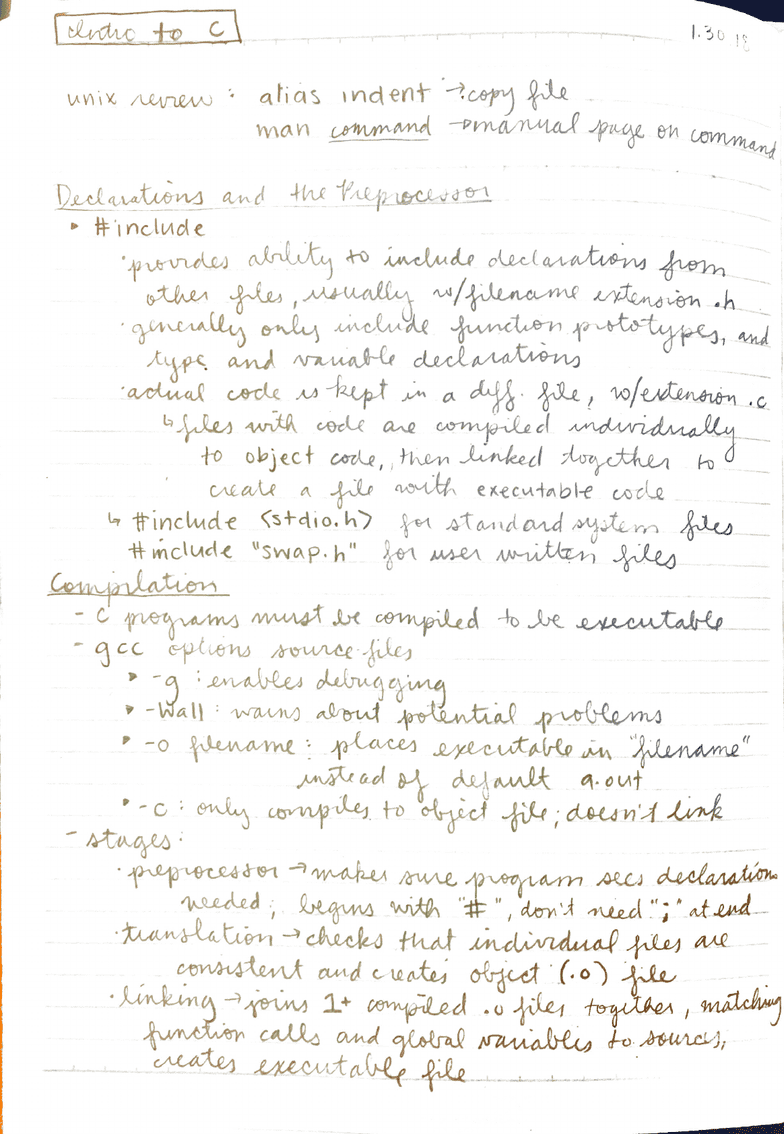 Intro to C
1.30.18
unix review: alias indent →?copy file
man command →manual page on command
Declarations and the Preprocessor
‣ #include
·provides ability to include declarations from
other files, usually w/filename extension .h
·generally only include function prototypes, and
type and variable declarations
·actual code is kept in a diff. file, w/extension .c
↳files with code are compiled individually
to object code, then linked together to
create a file with executable code
↳ #include <stdio.h> for standard system files
#include "swap.h" for user written files
Compilation
- C programs must be compiled to be executable
- gcc options source-files
‣ -g : enables debugging
‣ -Wall : warns about potential problems
‣ -o filename : places executable in "filename"
instead of default a.out
‣ -c : only compiles to object file; doesn't link
- stages:
·preprocessor → makes sure program sees declarations
needed; begins with "#", don't need ";" at end
·translation → checks that individual files are
consistent and creates object (.o) file
·linking → joins 1+ compiled .o files together, matching
function calls and global variables to sources,
creates executable file